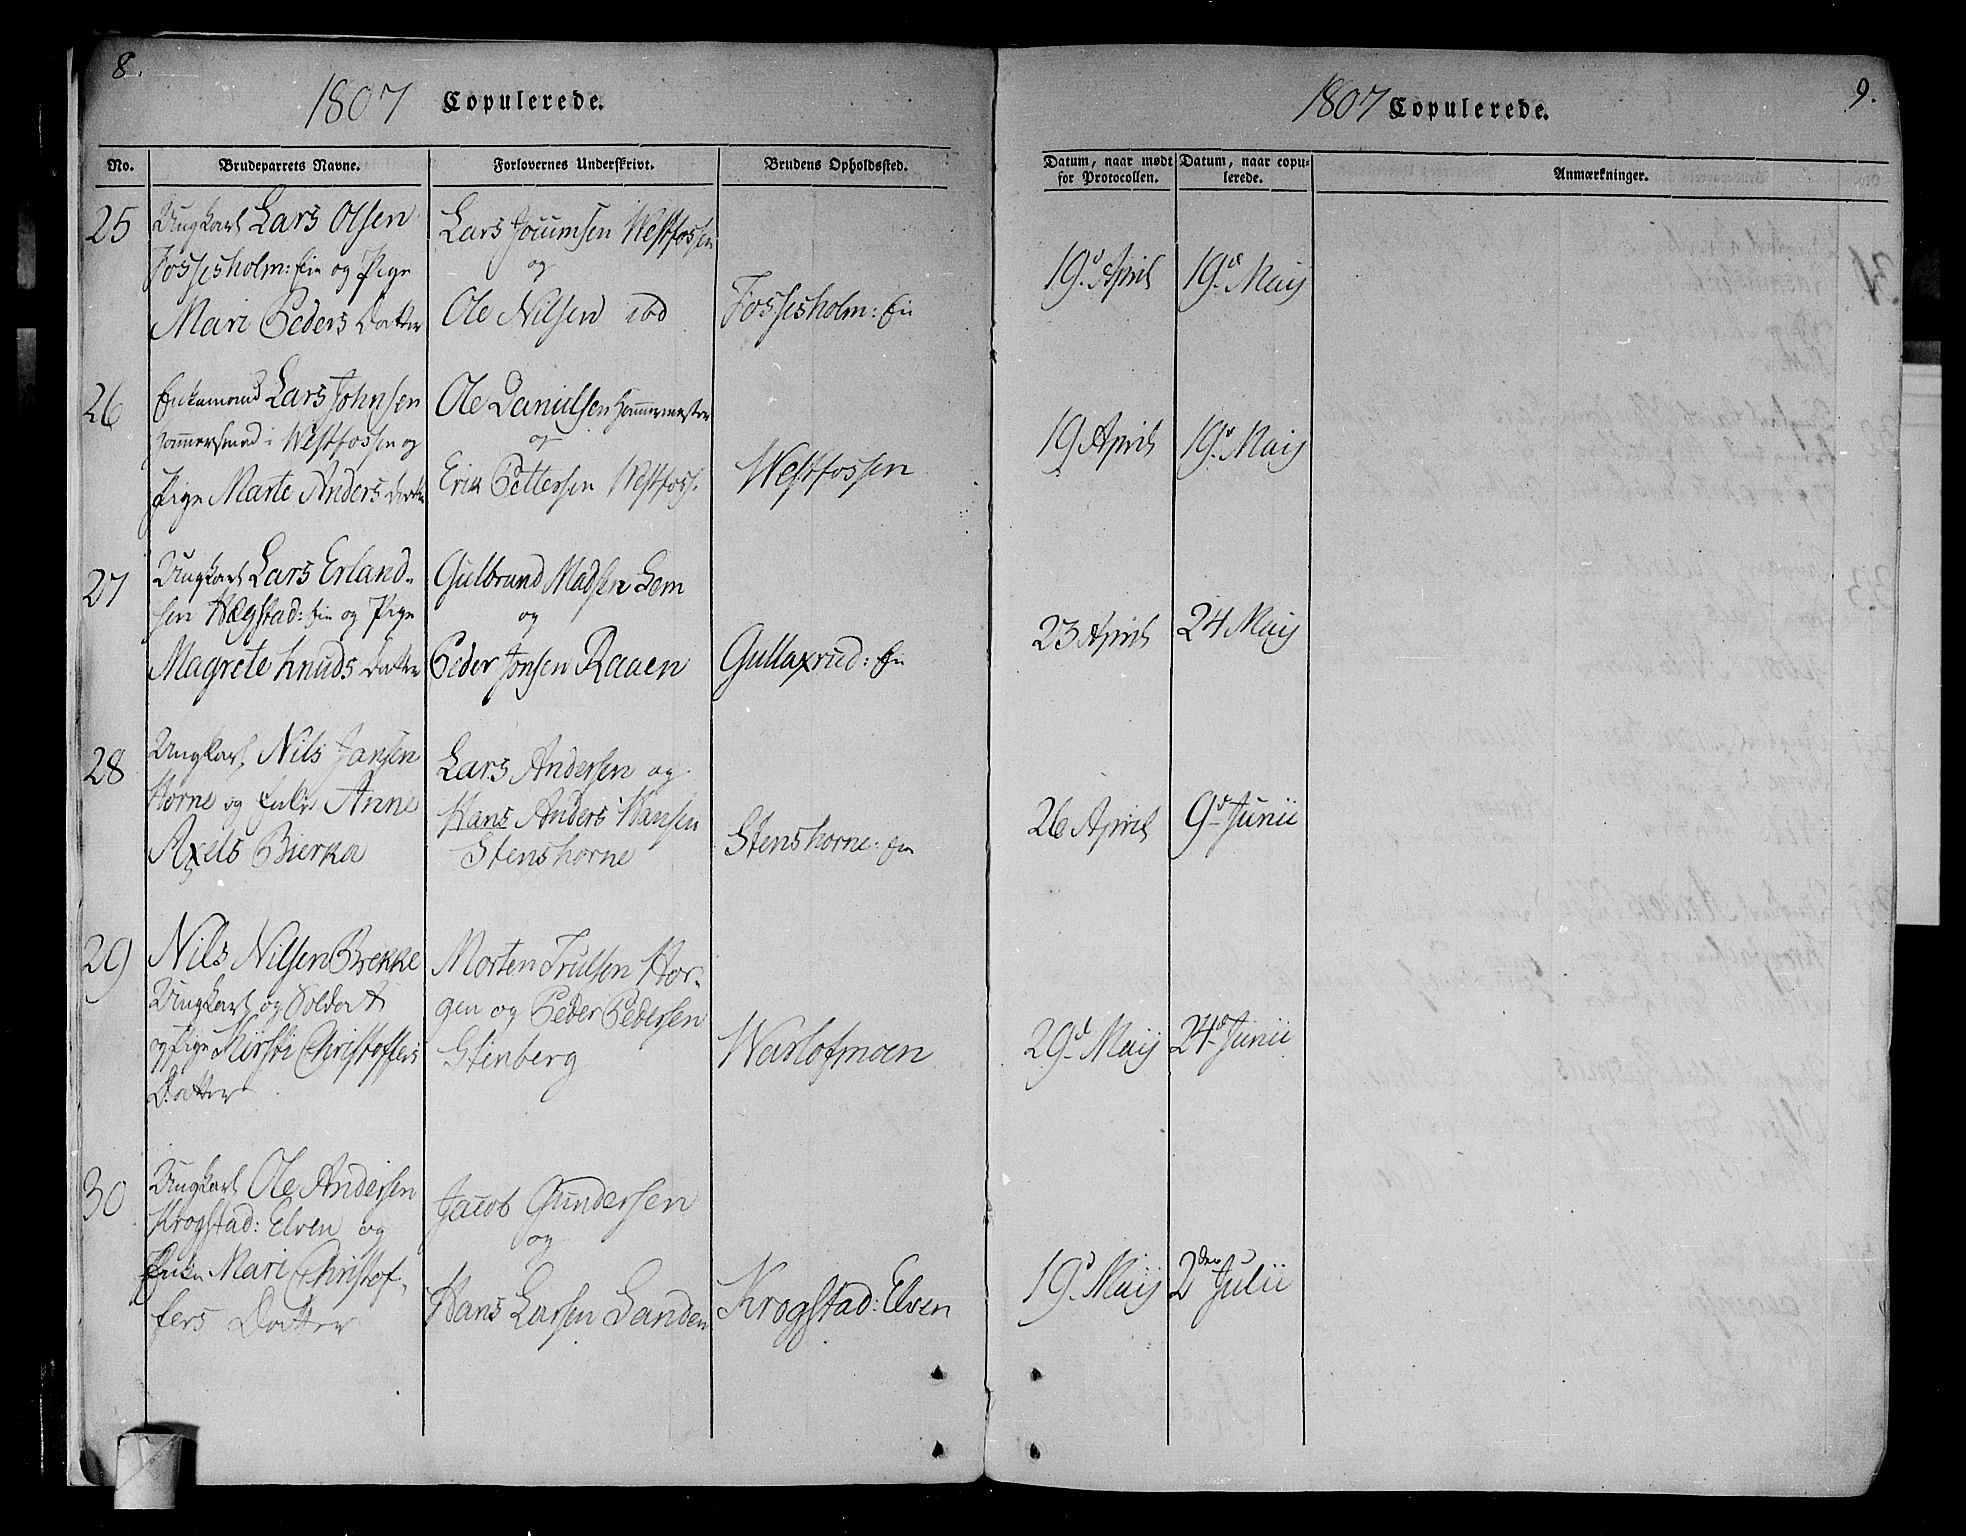 8.
1807 Copulerede.
No.
Brudeparrets Navne.
Forlovernes Underskrivt.
Brudens Opholdssted.
25
Ungkarl Lars Olsen
Fossesholm: Eie og Pige
Mari Peders Datter
Lars Jocumsen Westfossen
og
Ole Nilsen ibd
Fossesholm: Eie
26
Enkemand Lars Johnsen
Hammersmed i Westfossen og
Pige Marte Anders Datter
Ole Danielsen Hammermester
og
Erik Pettersen Westfoss.
Westfossen
27
Ungkarl Lars Erland-
sen Hægstad: Eie og Pige
Magrete Knuds Datter
Gulbrand Madsen Sem
og
Peder Jonsen Raaen
Gullaxrud: Eie
28
Ungkarl, Nils Jansen
Horne og Enke Anne
Axels Bierka
Lars Andersen og
Hans Anders Hansen
Stenshorne
Stenshorne: Eie
29
Nils Nilsen Brekke
Ungkarl og Soldat
og Pige Kirsti Christoffers
Datter
Morten Trulsen Hor-
gen og Peder Pedersen
Stenberg
Warlofmoen
30
Ungkarl Ole Andersen
Krogstad: Elven og
Enke Mari Christof-
fers Datter
Jacob Gundersen
og
Hans Larsen Sanden
Krogstad: Elven
9.
1807 Copulerede.
Datum, naar mødt
for Protocollen.
Datum, naar copu-
lerede.
Anmærkninger.
19d April
19d Maij
19 April
19d Maij
23 April
24 Maij
26 April
9d Junii
29d Maij
24d Junii
19d Maij
2den Julii